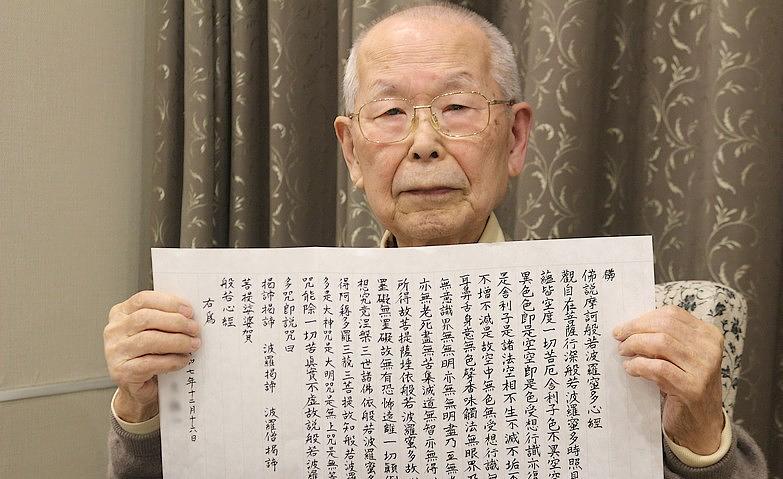 佛
佛説摩訶般若波羅蜜多心經
觀自在菩薩行深般若波羅蜜多時照見
蘊皆空度一切苦厄舎利子色不異空空
異色色即是空空即是色受想行識亦復
是舎利子是諸法空相不生不滅不垢不
不增不減是故空中無色無受想行識
耳鼻舌身意無色聲香味觸法無眼界乃
無意識界無無明亦無無明盡乃至無老
亦無老死盡無苦集滅道無智亦無得
所得故菩提薩埵依般若波羅蜜多故
罣礙無罣礙故無有恐怖遠離一切顛倒
想究竟涅槃三世諸佛依般若波羅蜜多
得阿耨多羅三藐三菩提故知般若波羅
多是大神咒是大明咒是無上咒是無等
咒能除一切苦真實不虚故説般若波羅
多咒即説咒曰
揭諦揭諦 波羅揭諦 波羅僧揭諦
菩提娑婆賀
般若心經
右爲
和七年十二月十六日